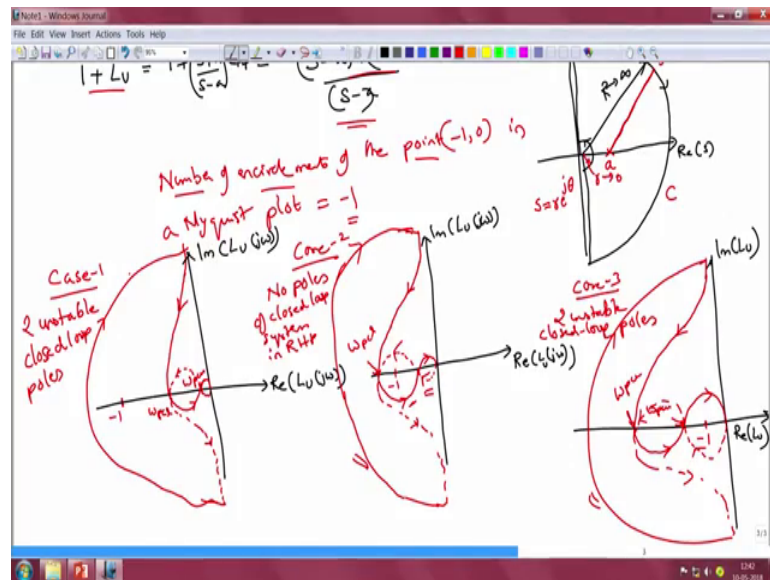 Note1 - Windows Journal
File Edit View Insert Actions Tools Help
90%
1 + Lu = 1 +
(s-a)
R→∞
Re(s)
a
r→0
s=re^jθ
C
Number of encirclements of the point (-1,0) in
a Nyquist plot = -1
Im(Lu(jω))
Case-1
2 unstable
closed loop
poles
-1
Re(Lu(jω))
Im(Lu(jω))
Case-2
No poles
of closed loop
system
in RHP
-1
Re(Lu(jω))
Im(Lu)
Case-3
2 unstable
closed-loop poles
-1
Re(Lu)
3/3
12:42
10-05-2018